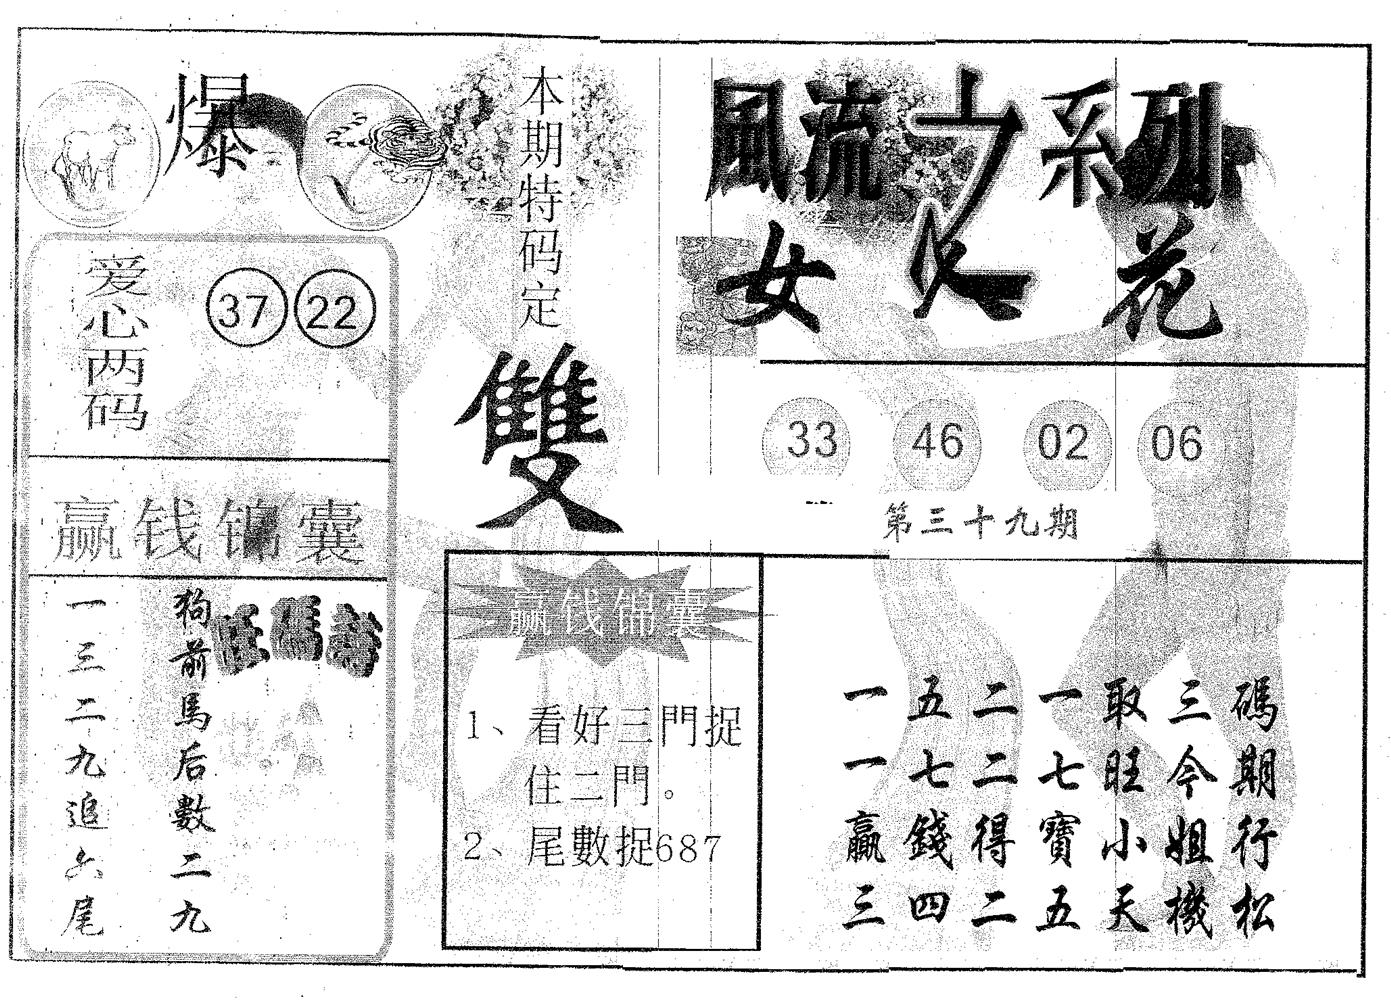 爆
本期特码定
雙
爱心两码
37 22
赢钱锦囊
狗前馬后數二九
一三二九追六尾
赢钱锦囊
1、看好三門捉
住二門。
2、尾數捉687
風流之系列
女人花
33 46 02 06
第三十九期
一五二一取三碼
一七二七旺今期
贏錢得寶小姐行
三四二五天機松